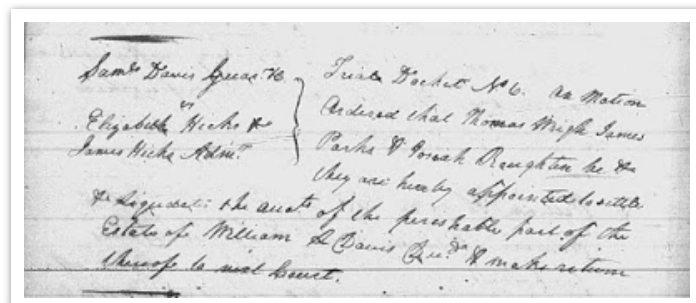 Saml Davis Guar &c.
vs
Elizabeth Hicks &
James Hicks Admr
Trial Docket No 6. on Motion
Ordered that Thomas Wrigh James
Parks & Josiah Roughton be &
they are hereby appointed to settle
& liquidate the accts of the perishable part of the
Estate of William Davis & make return
thereof to next Court.